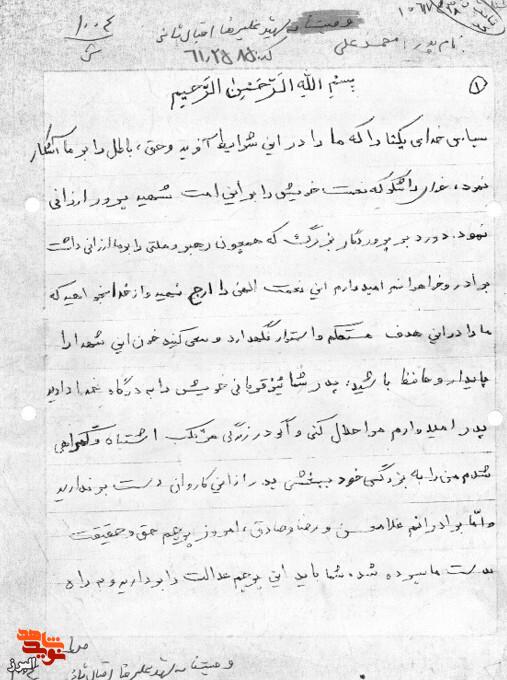 وصیتنامه شهید علیرضا اقبال ثانی
نام پدر: محمد علی
کد ۶۱٫۲۵۸۵
۱۰۰۴
ش
۱
بِسْمِ اللهِ الرَّحْمٰنِ الرَّحیم
سپاس خدای یکتا را که ما را در این شرایط آفرید و حق، باطل را بر ما آشکار
نمود، خدای را شکر که نعمت خویش را بر این امت شهید پرور ارزانی
نمود. درود بر پروردگار بزرگ که همچون رهبر و ملتی را بر ما ارزانی داشت
برادر و خواهرانم امیدوارم این نعمت الهی را ارج نهید و از خدا بخواهید که
ما را در این هدف مستحکم و استوار نگهدارد و سعی کنید خون این شهدا را
پایدار و حافظ باشید، پدر شما نیز قربانی خویش را به درگاه خدا دادید
پدر امیدوارم مرا حلال کنی و اگر در زندگی مرتکب اشتباه و گمراهی
شدم من را به بزرگی خود ببخشی پدر از این کاروان دست برندارید
و امّا برادرانم غلامحسن و رضا و صادق، امروز پرچم حق و حقیقت
بدست ما سپرده شد، شما باید این پرچم عدالت را بردارید و به راه
نوید شاهد
وصیتنامه شهید علیرضا اقبال ثانی